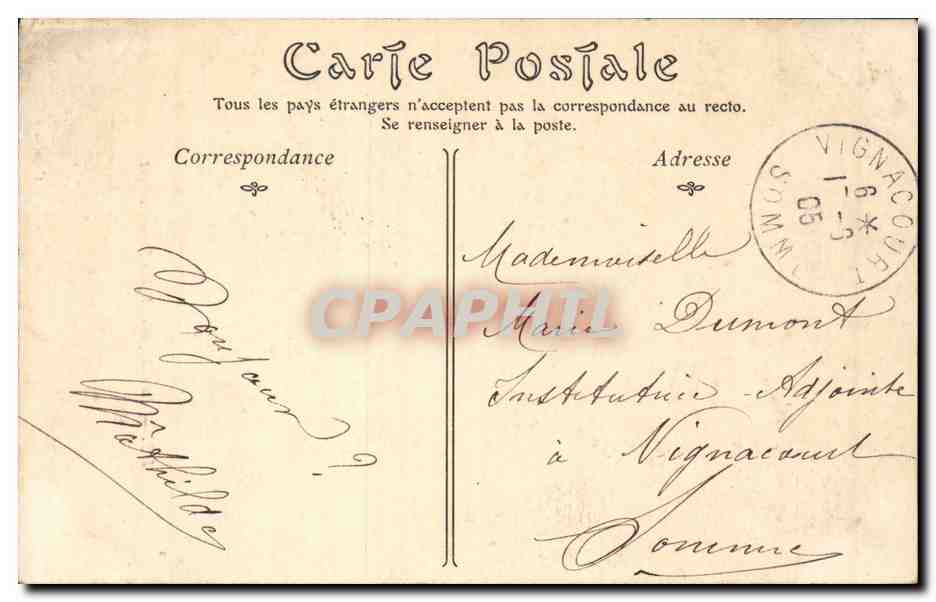 Carte Postale
Tous les pays étrangers n'acceptent pas la correspondance au recto.
Se renseigner à la poste.
Correspondance
Adresse
VIGNACOURT
6 *
1 -9
05
SOMME
Bonjour ?
Mathilde
Mademoiselle
Marie Dumont
Institutrice Adjointe
à Vignacourt
Somme
CPAPHIL